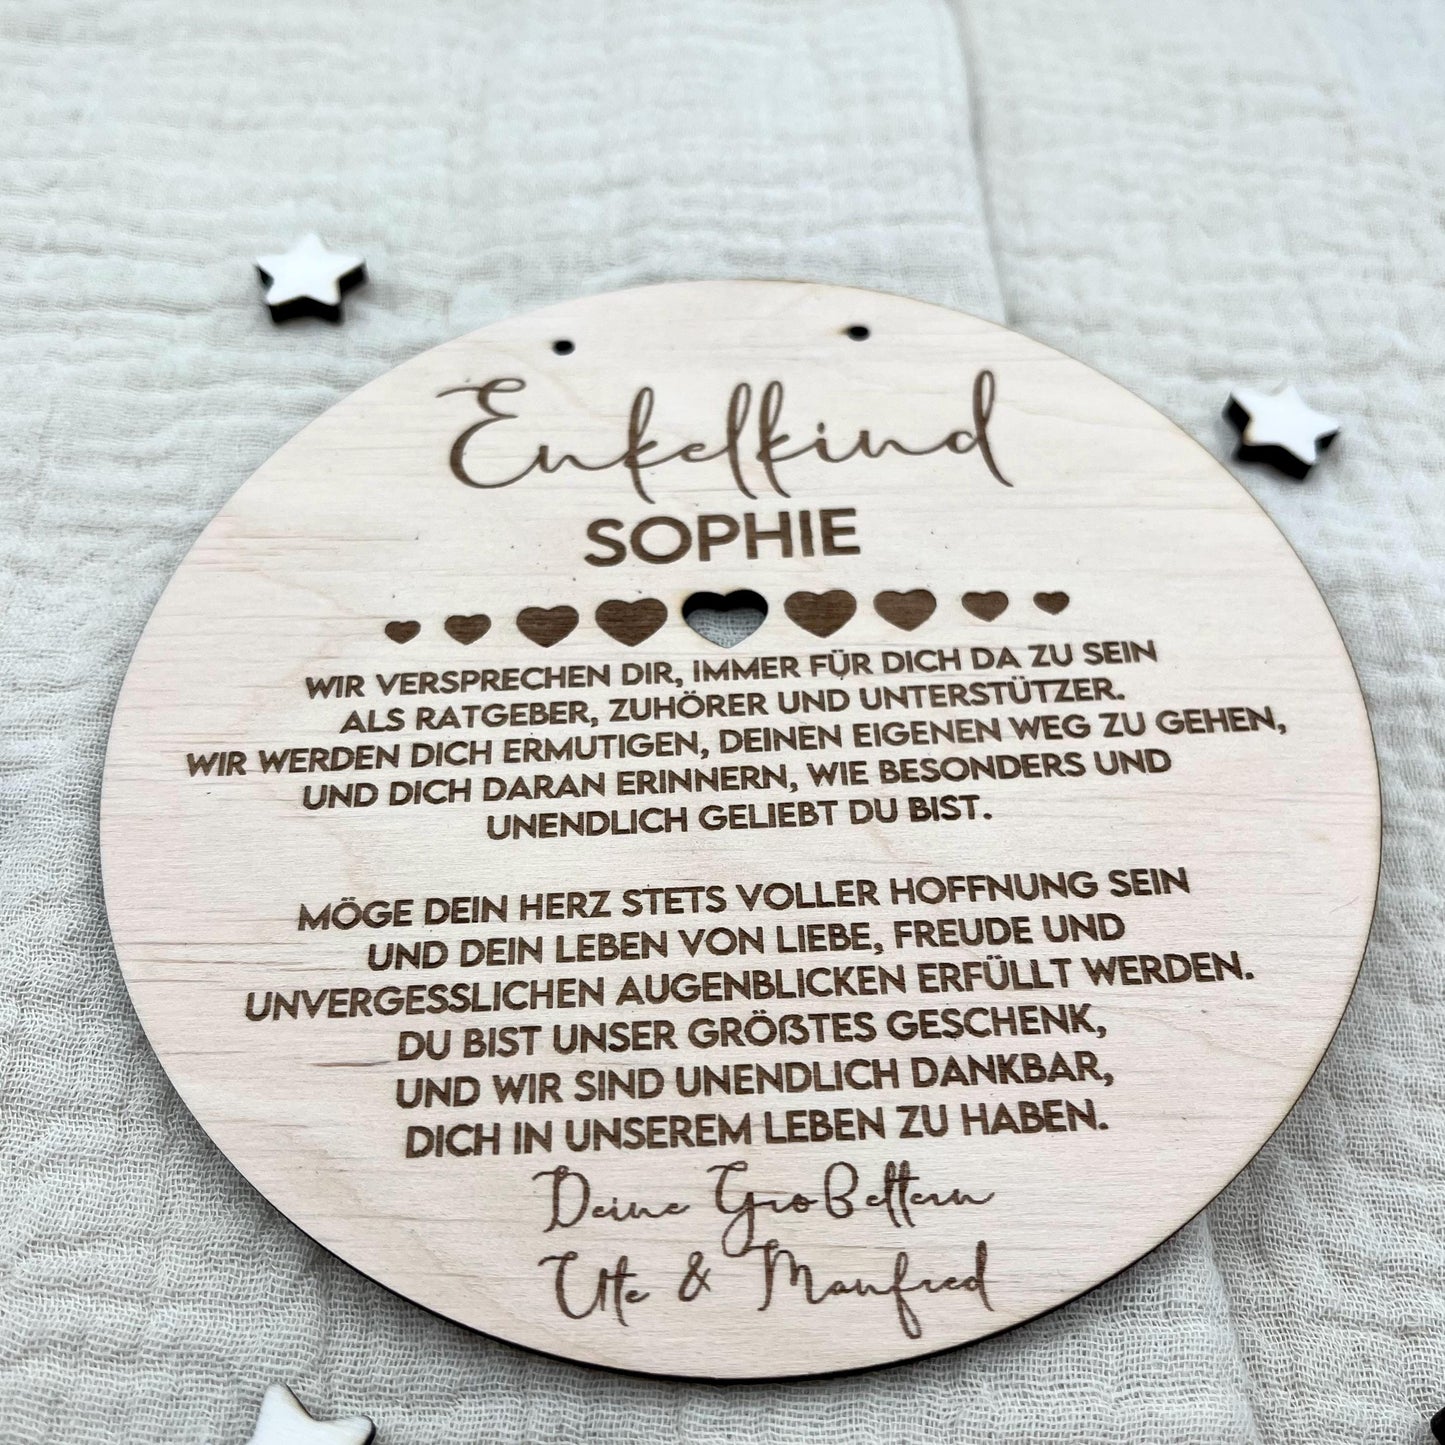 Enkelkind
SOPHIE
WIR VERSPRECHEN DIR, IMMER FÜR DICH DA ZU SEIN
ALS RATGEBER, ZUHÖRER UND UNTERSTÜTZER.
WIR WERDEN DICH ERMUTIGEN, DEINEN EIGENEN WEG ZU GEHEN,
UND DICH DARAN ERINNERN, WIE BESONDERS UND
UNENDLICH GELIEBT DU BIST.
MÖGE DEIN HERZ STETS VOLLER HOFFNUNG SEIN
UND DEIN LEBEN VON LIEBE, FREUDE UND
UNVERGESSLICHEN AUGENBLICKEN ERFÜLLT WERDEN.
DU BIST UNSER GRÖßTES GESCHENK,
UND WIR SIND UNENDLICH DANKBAR,
DICH IN UNSEREM LEBEN ZU HABEN.
Deine Großeltern
Ute & Manfred